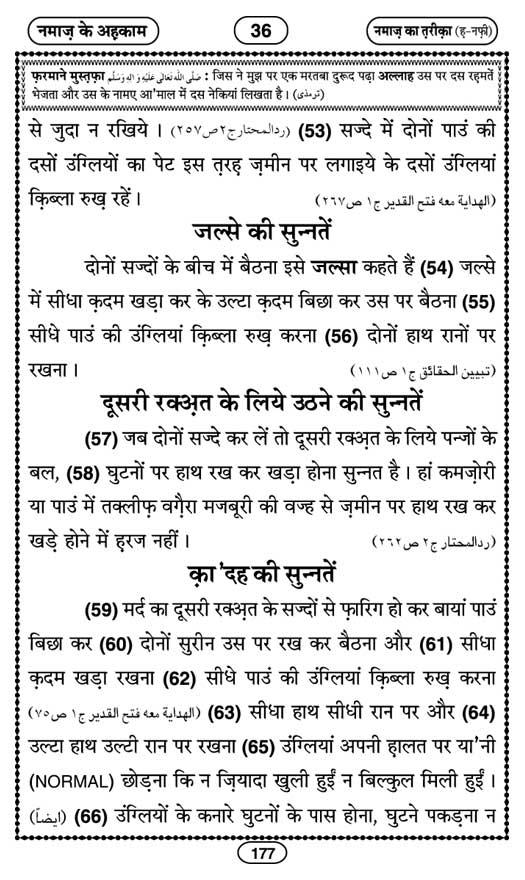 नमाज़ के अह़काम
36
नमाज़ का त़रीक़ा (ह़-नफ़ी)
फ़रमाने मुस्त़फ़ा صَلَّى اللهُ تَعَالٰى عَلَيْهِ وَاٰلِهٖ وَسَلَّم : जिस ने मुझ पर एक मरतबा दुरूद पढ़ा अल्लाह उस पर दस रह़मतें
भेजता और उस के नामए आ'माल में दस नेकियां लिखता है। (ترمذی)
से जुदा न रखिये । (ردالمحتار ج٢ ص٢٥٧) (53) सज्दे में दोनों पाउं की
दसों उंग्लियों का पेट इस त़रह़ ज़मीन पर लगाइये के दसों उंग्लियां
क़िब्ला रुख़ रहें । (الهداية معه فتح القدير ج١ ص٢٦٧)
जल्से की सुन्नतें
दोनों सज्दों के बीच में बैठना इसे जल्सा कहते हैं (54) जल्से
में सीधा क़दम खड़ा कर के उल्टा क़दम बिछा कर उस पर बैठना (55)
सीधे पाउं की उंग्लियां क़िब्ला रुख़ करना (56) दोनों हाथ रानों पर
रखना । (تبيين الحقائق ج١ ص١١١)
दूसरी रक्अ़त के लिये उठने की सुन्नतें
(57) जब दोनों सज्दे कर लें तो दूसरी रक्अ़त के लिये पन्जों के
बल, (58) घुटनों पर हाथ रख कर खड़ा होना सुन्नत है । हां कमज़ोरी
या पाउं में तक्लीफ़ वग़ैरा मजबूरी की वज्ह से ज़मीन पर हाथ रख कर
खड़े होने में ह़रज नहीं । (ردالمحتار ج٢ ص٢٦٢)
क़ा'दह की सुन्नतें
(59) मर्द का दूसरी रक्अ़त के सज्दों से फ़ारिग़ हो कर बायां पाउं
बिछा कर (60) दोनों सुरीन उस पर रख कर बैठना और (61) सीधा
क़दम खड़ा रखना (62) सीधे पाउं की उंग्लियां क़िब्ला रुख़ करना
(الهداية معه فتح القدير ج١ ص٧٥) (63) सीधा हाथ सीधी रान पर और (64)
उल्टा हाथ उल्टी रान पर रखना (65) उंग्लियां अपनी ह़ालत पर या'नी
(NORMAL) छोड़ना कि न ज़ियादा खुली हुईं न बिल्कुल मिली हुईं ।
(ايضاً) (66) उंग्लियों के कनारे घुटनों के पास होना, घुटने पकड़ना न
177